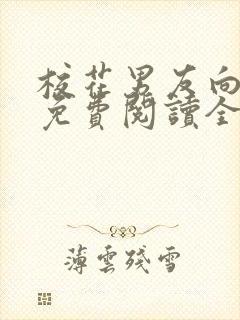 校花男友向
免費閱讀全
薄雲殘雪